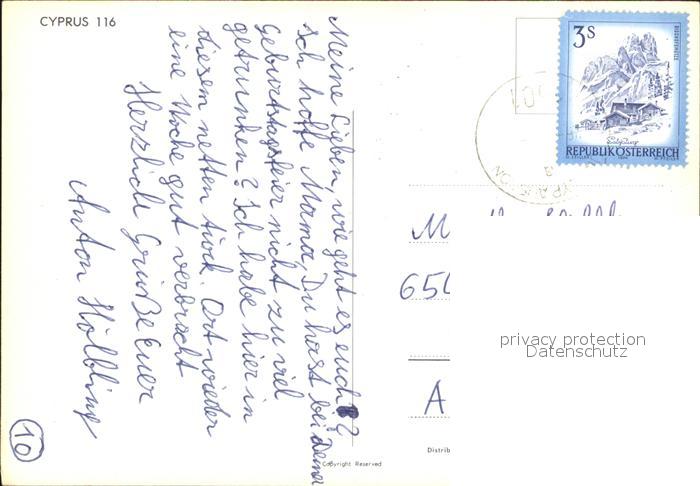 CYPRUS 116
Meine Lieben, wie geht es euch?
Ich hoffe Mama, Du hast bei Deiner
Geburtstagsfeier nicht zu viel
getrunken? Ich habe hier in
diesem netten türk. Ort wieder
eine Woche gut verbracht
Herzliche Grüße Euer
Anton Hölbling
10
3S
REPUBLIK ÖSTERREICH
M
650
A
privacy protection
Datenschutz
Distrib
Copyright Reserved